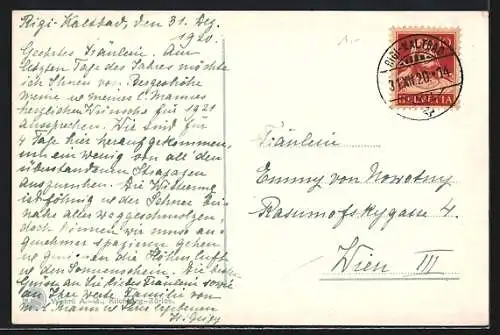 Rigi-Kaltbad, den 31. Dez.
1920.
Geehrtes Fräulein. Am
letzten Tage des Jahres möchte
ich Ihnen von Bergeshöhe
meine u. meines l. Mannes
herzlichen Wünsche für 1921
aussprechen. Wir sind für
4 Tage hier heraufgekommen,
um ein wenig von all' den
überstandenen Strapazen
auszuruhen. Die Witterung
ist föhnig u. der Schnee bei-
nahe aller weggeschmolzen,
doch können wir nun an-
genehmer spazieren gehen
u. an die Höhenluft
u. den Sonnenschein. Die besten
Grüsse an Sie liebes Fräulein sowie
an Ihre werte Familie von
m. l. Mann u. Ihrer ergebenen
Wehrli A.-G., Kilchberg-Zürich.
RIGI-KALTBAD
31.XII.20.-14
HELVETIA
Fräulein
Emmy von Nowotny
Rasumofskygasse 4.
Wien III